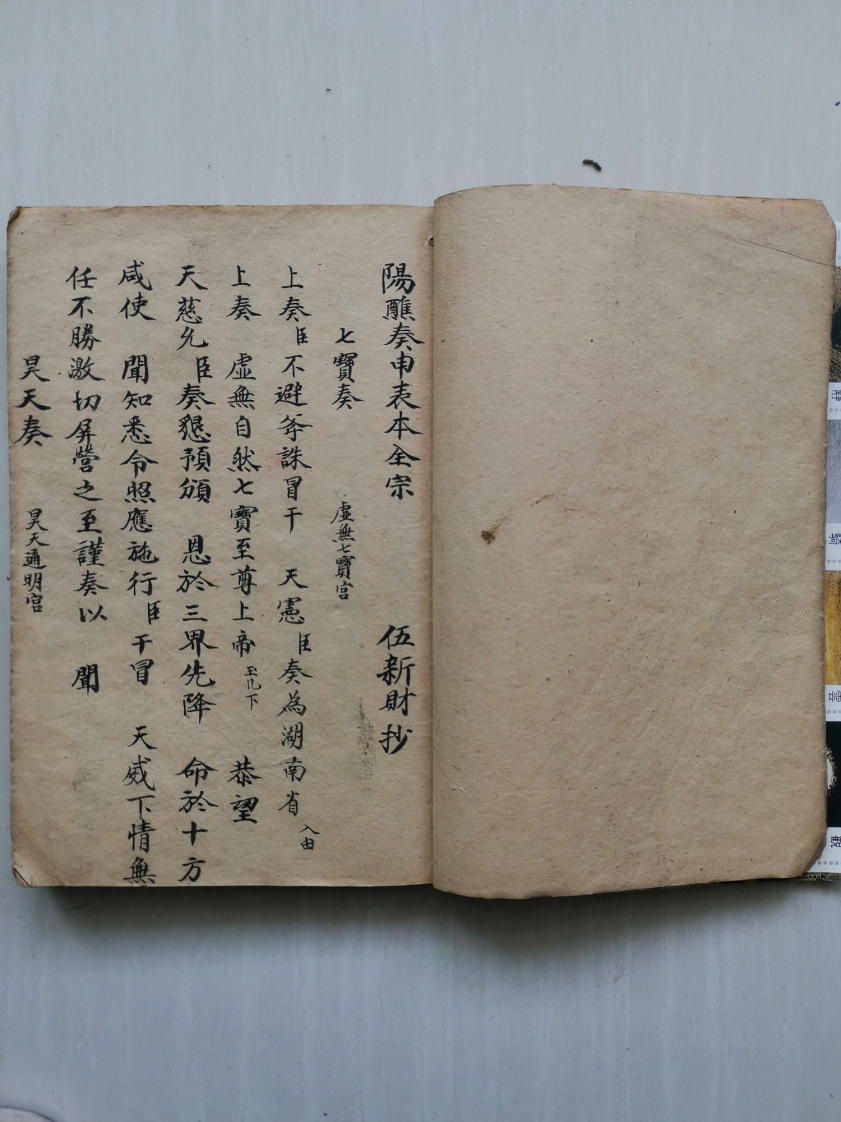 陽醮奏申表本全宗 伍新財抄
七寶奏 虛無七寶宮
上奏臣不避斧誅冒干 天憲臣奏為湖南省 入由
上奏 虛無自然七寶至尊上帝 玉几下 恭望
天慈允臣奏懇預頒 恩於三界先降 命於十方
咸使 聞知悉令照應施行臣干冒 天威下情無
任不勝激切屏營之至謹奏以 聞
昊天奏 昊天通明宮